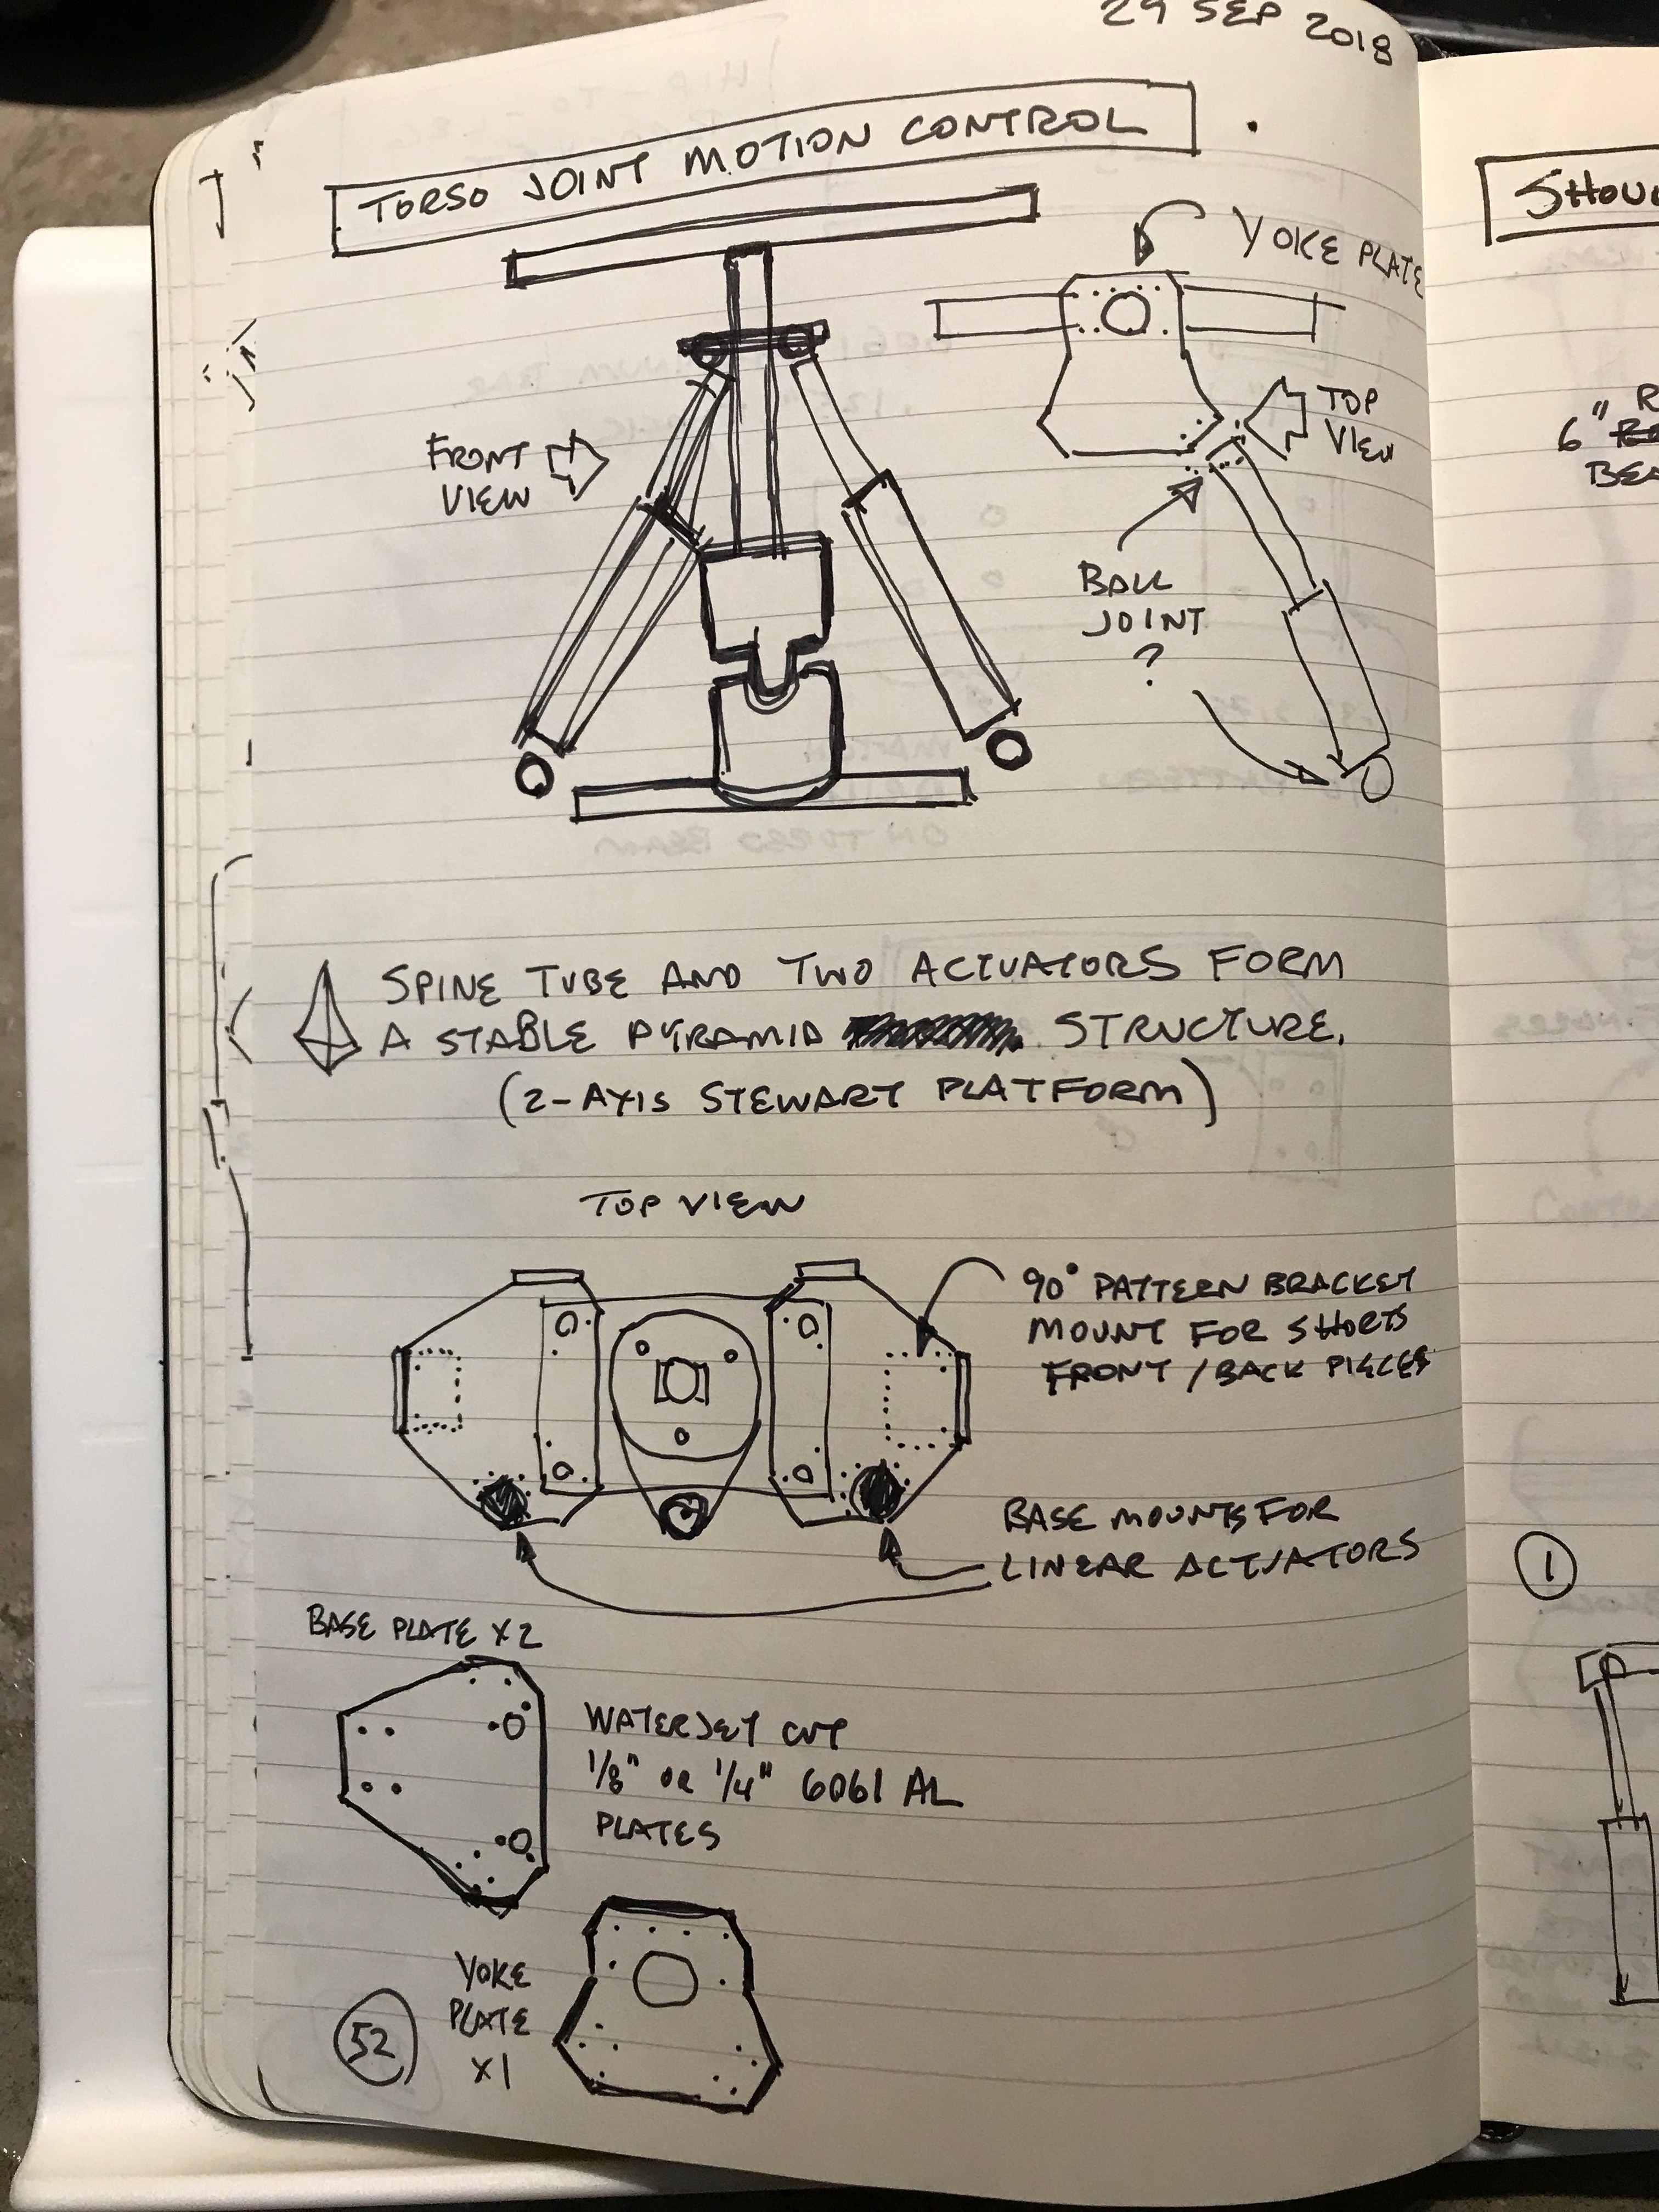 29 SEP 2018
TORSO JOINT MOTION CONTROL
YOKE PLATE
FRONT
VIEW
TOP
VIEW
BALL
JOINT
?
SPINE TUBE AND TWO ACTUATORS FORM
A STABLE PYRAMID STRUCTURE.
(2-AXIS STEWART PLATFORM)
TOP VIEW
90° PATTERN BRACKET
MOUNT FOR SHORTS
FRONT / BACK PIECES
BASE MOUNTS FOR
LINEAR ACTUATORS
BASE PLATE X2
WATERJET CUT
1/8" OR 1/4" 6061 AL
PLATES
YOKE
PLATE
X1
52
SHOU
6" R
BEA
1